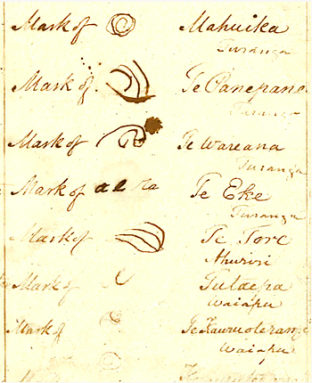 Mark of Mahuika
Turanga
Mark of Te Panepane
Turanga
Mark of Te Wareana
Turanga
Mark of Te Eke
Turanga
Mark of Te Tore
Ahuriri
Mark of Tutaepa
Waiapu
Mark of
Waiapu